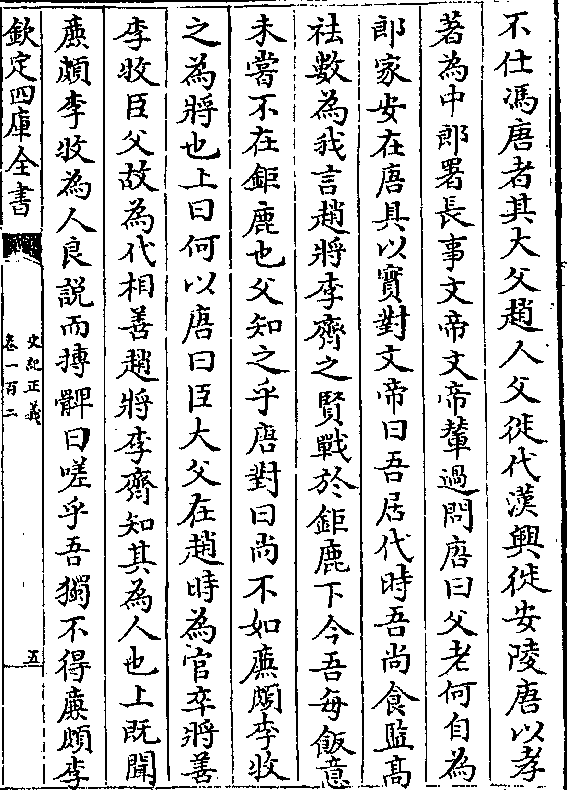 不仕馮唐者其大父趙人父徙代漢興徙安陵唐以孝
著為中郎署長事文帝文帝輦過問唐曰父老何自為
郎家安在唐具以實對文帝曰吾居代時吾尚食監髙
祛數為我言趙將李齊之賢戰於鉅鹿下今吾每飯意
未嘗不在鉅鹿也父知之乎唐對曰尚不如廉頗李牧
之為將也上曰何以唐曰臣大父在趙時為官卒將善
李牧臣父故為代相善趙將李齊知其為人也上既聞
廉頗李牧為人良說而搏髀曰嗟乎吾獨不得廉頗李
欽定四庫全書
史記正義
卷一百二
五